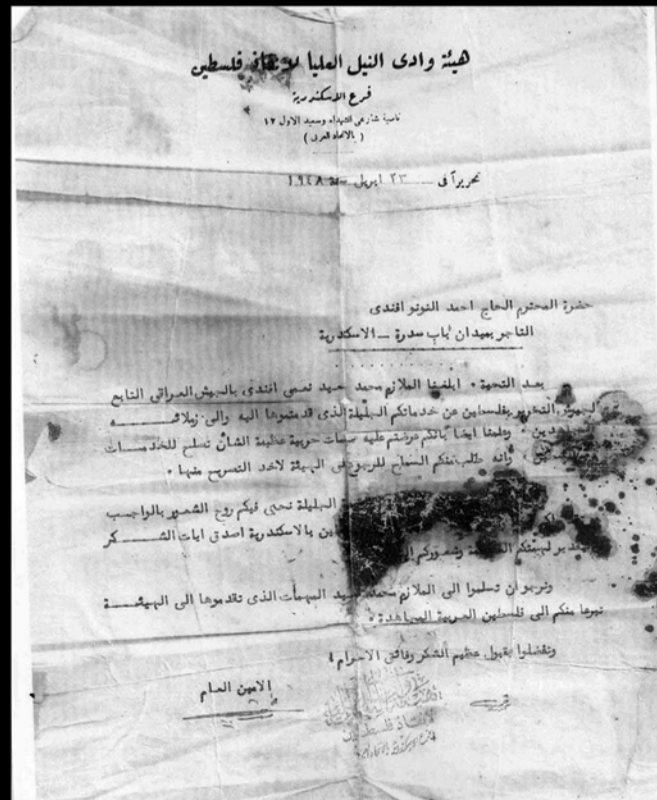 هيئة وادى النيل العليا لانقاذ فلسطين
فرع الاسكندرية
ناصية شارعى الشهداء وسعيد الاول ١٢
( بالاتحاد العربى )
تحريرآ فى ٢٣ ابريل سنة ١٩٤٨
حضرة المحترم الحاج احمد النونو افندى
التاجر بميدان باب سدرة ــ الاسكندرية
بعد التحية ٠ ابلغنا الملازم محمد حميد نعمى افندى بالجيش العراقى التابع
لجيوش التحرير بفلسطين عن خدماتكم الجليلة الذى قدمتموها اليه والى زملائه
وعلمنا ايضا بانكم عرضتم عليه مهمات حربية عظيمة الشأن تصلح للخدمات
وانه طلب منكم السماح للرجوع الى الهيئة لاخذ التصريح منها ٠
الجليلة نحيى فيكم روح الشعور بالواجب
بالاسكندرية اصدق ايات الشكر
لهمتكم وشعوركم
ونرجو ان تسلموا الى الملازم محمد حميد المهمات الذى تقدموها الى الهيئة
منكم الى فلسطين العربية المجاهدة ٠
وتفضلوا بقبول عظيم الشكر وفائق الاحترام ،
الامين العام
لانقاذ فلسطين